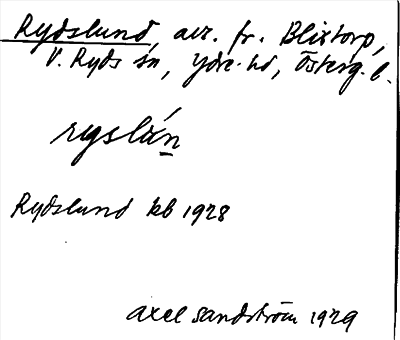 Rydslund, avs. fr. Blixtorp,
V. Ryds sn, Ydre hd, Österg. l.
ryslán
Rydslund kb 1928
Axel Sandström 1929